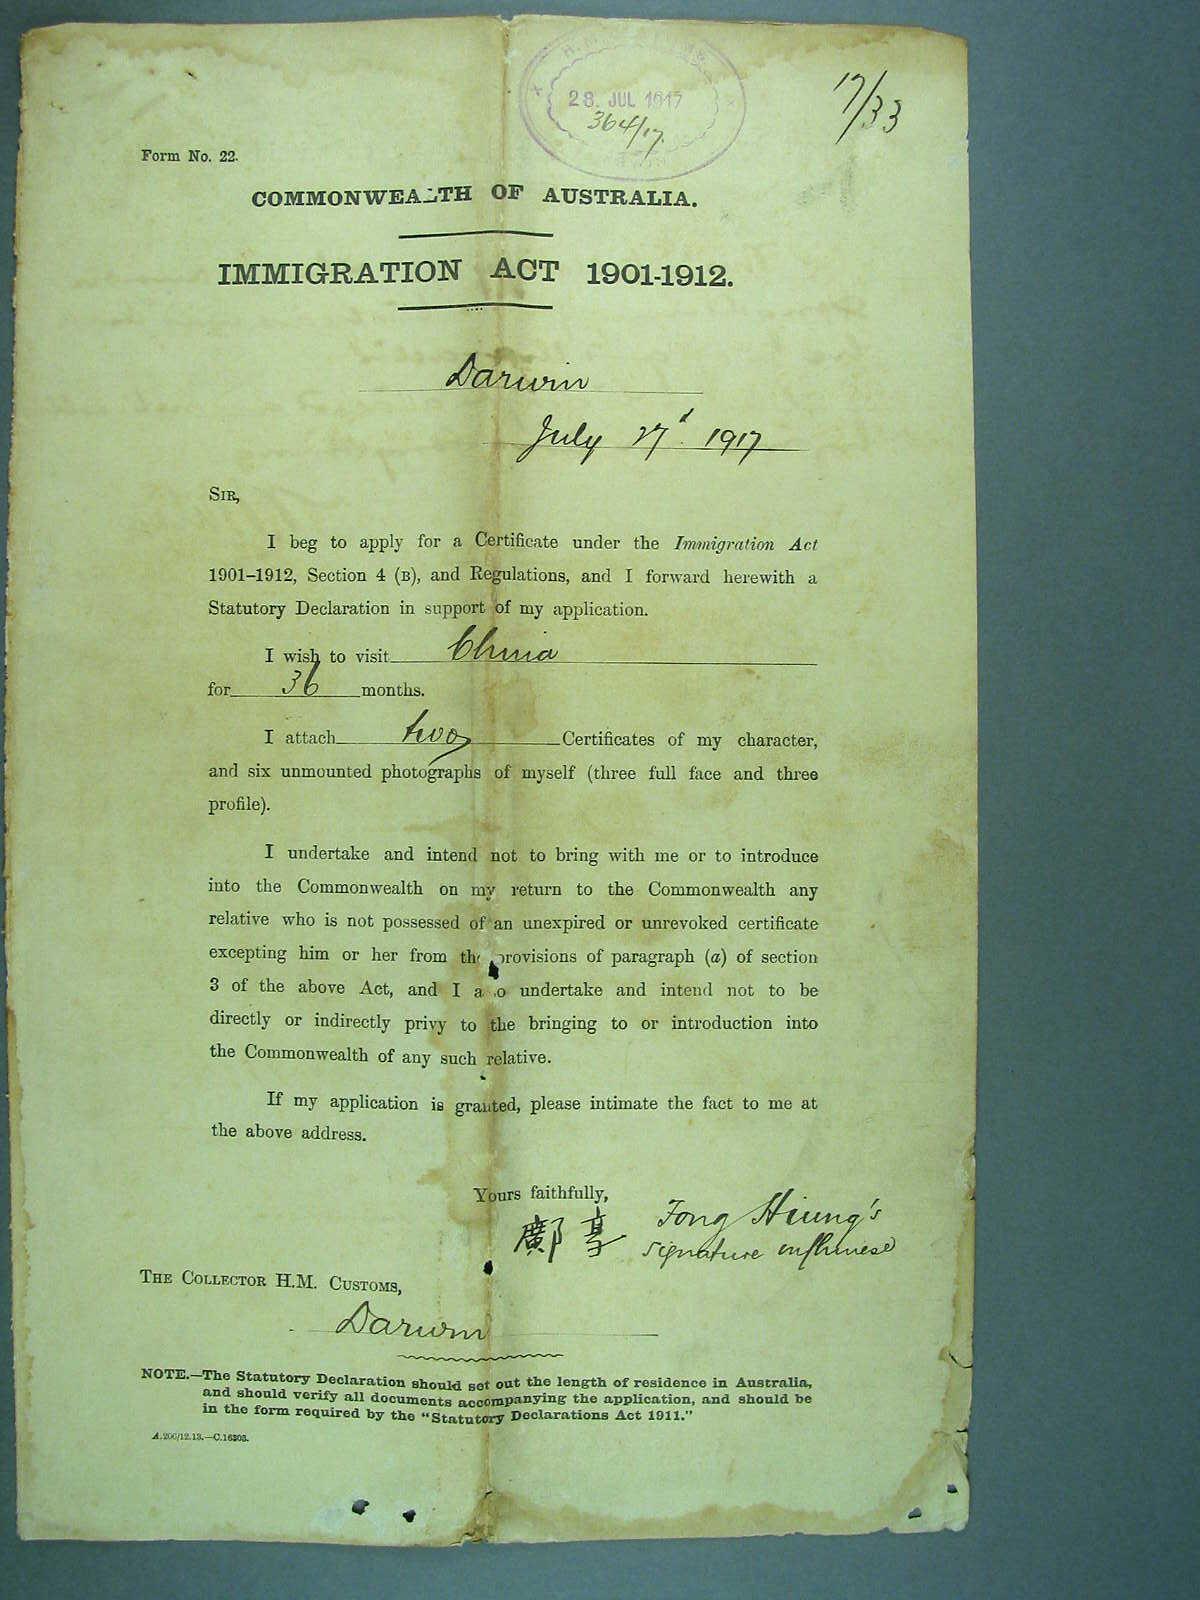 28. JUL 1917
364/17.
17/33
Form No. 22.
COMMONWEALTH OF AUSTRALIA.
IMMIGRATION ACT 1901-1912.
Darwin
July 27d. 1917
SIR,
I beg to apply for a Certificate under the Immigration Act
1901–1912, Section 4 (B), and Regulations, and I forward herewith a
Statutory Declaration in support of my application.
I wish to visit China
for 36 months.
I attach two Certificates of my character,
and six unmounted photographs of myself (three full face and three
profile).
I undertake and intend not to bring with me or to introduce
into the Commonwealth on my return to the Commonwealth any
relative who is not possessed of an unexpired or unrevoked certificate
excepting him or her from the provisions of paragraph (a) of section
3 of the above Act, and I also undertake and intend not to be
directly or indirectly privy to the bringing to or introduction into
the Commonwealth of any such relative.
If my application is granted, please intimate the fact to me at
the above address.
Yours faithfully,
鄺亨 Fong Hiung's
signature in Chinese
THE COLLECTOR H.M. CUSTOMS,
Darwin
NOTE.—The Statutory Declaration should set out the length of residence in Australia,
and should verify all documents accompanying the application, and should be
in the form required by the "Statutory Declarations Act 1911."
A.200/12.13.—C.16303.